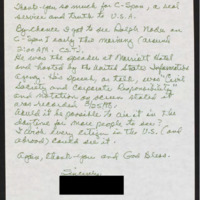 Thank you so much for C-Span, a real
service and truth to U.S.A.
By chance I got to see Ralph Nader on
C-Span early this morning (around
2:00 A.M. CST).
He was the speaker at Marriott Hotel
and hosted by the United States Information
Agency. His speech, or talk, was "Civil
Society and Corporate Responsibility"
and notation on screen stated it
was recorded
Would it be possible to air it in the
daytime for more people to see?
I wish every citizen in the U.S. (and
abroad) could see it.
Again, thank-you and God Bless.
Sincerely,